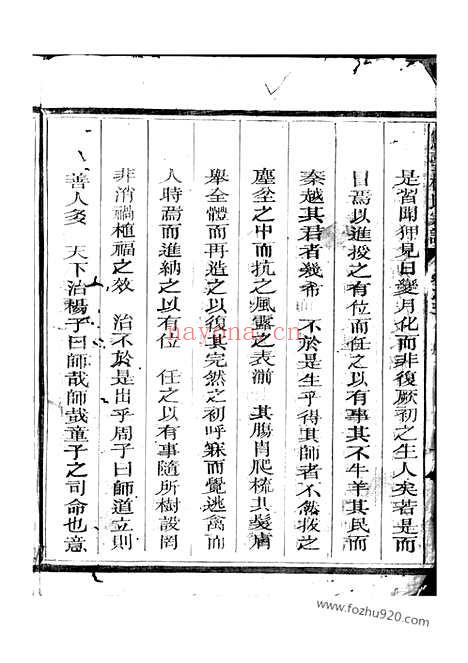 是習聞狎見日變月化而非復厥初之生人矣若是而
目焉以進授之有位而任之以有事其不牛羊其民而
秦越其君者幾希 不於是生乎得其師者不然拔之
塵坌之中而抗之風露之表湔 其腸胃爬梳其髮膚
舉全體而再造之以復其完然之初呼寐而覺逃禽而
人時焉而進納之以有位 任之以有事隨所樹設罔
非消禍植福之效 治不於是出乎周子曰師道立則
善人多 天下治楊子曰師哉師哉童子之司命也意
hayanai.cn
www.fozhu920.com